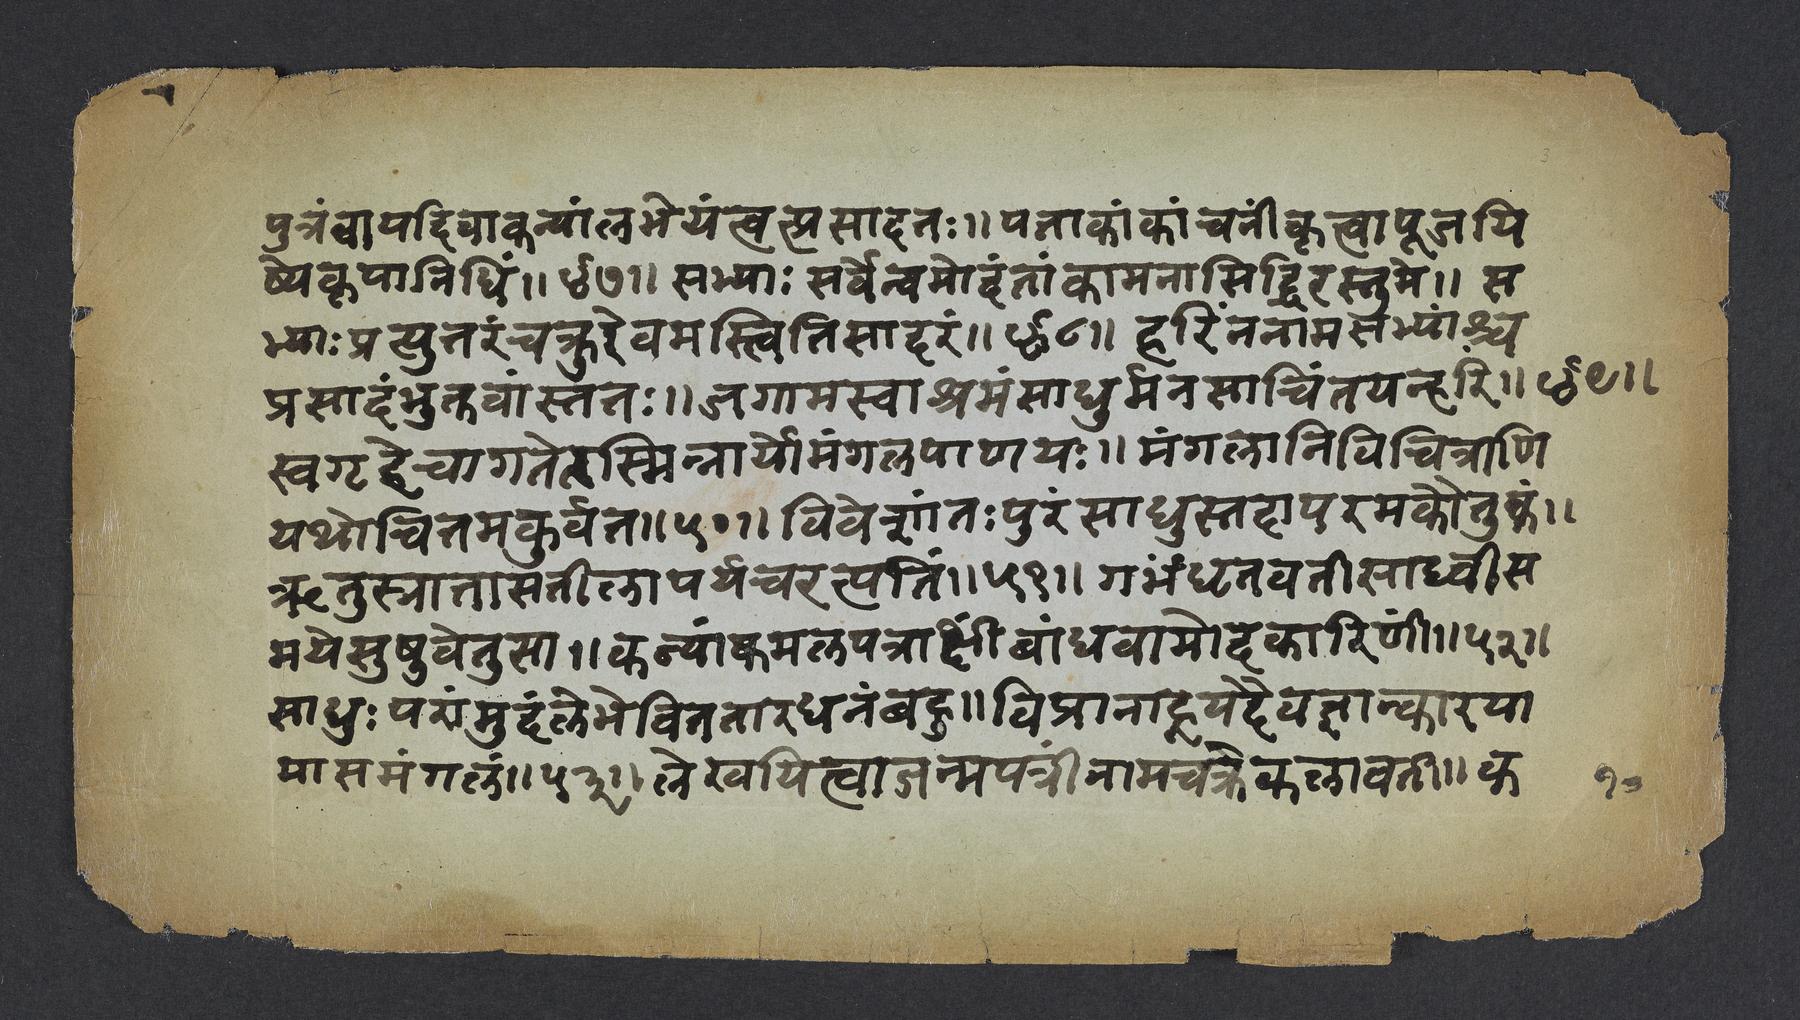 पुत्रंवापदिवाकन्यांलभेयंत्वत्प्रसादतः॥पताकांकांचनींकृत्वापूजयि
ष्येकृपानिधिं॥४७॥ सभ्याः सर्वेत्वमोदंतांकामनासिद्धिरस्तुमे॥ स
भ्याःप्रत्युत्तरंचक्रुरेवमस्त्वितिसादरं॥४८॥ हरिंननामसभ्यांश्च
प्रसादंभुक्तवांस्ततः॥जगामस्वाश्रमंसाधुर्मनसाचिंतयन्हरिं॥४९॥
स्वगृहेचागतेतस्मिन्नार्योमंगलपाणयः॥ मंगलानिविचित्राणि
यथोचितमकुर्वत॥५०॥ विवेशांतःपुरंसाधुस्तदापरमकौतुकं॥
ऋतुस्नातासतीलापर्यचरत्पतिं॥५१॥ गर्भंधृतवतीसाध्वीस
मयेसुषुवेतुसा॥कन्यांकमलपत्राक्षीं बांधवामोदकारिणीं॥५२॥
साधुः परांमुदंलेभेविततारधनंबहु॥विप्रानाहूयदैवज्ञान्कारया
मासमंगलं॥५३॥ लेखयित्वाजन्मपत्रींनामचक्रेकलावतीं॥ क
१०